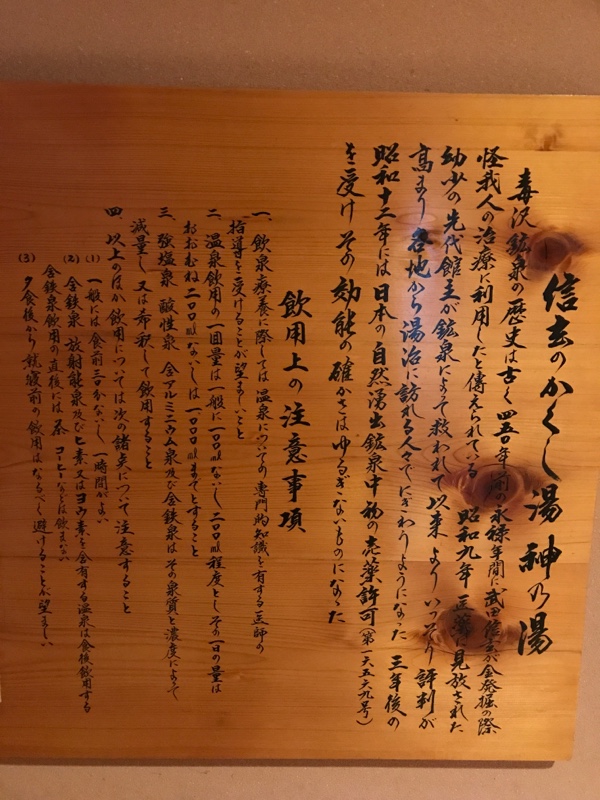 信玄のかくし湯 神乃湯
毒沢鉱泉の歴史は古く 四五〇年前の永禄年間に武田信玄が金発掘の際
怪我人の治療に利用したと傳えられている 昭和九年 医薬に見放された
幼少の先代館主が鉱泉によって救われて以来 よりいっそう評判が
高まり 各地から湯治に訪れる人々でにぎわうようになった 三年後の
昭和十二年には 日本の自然湧出鉱泉中初の売薬許可(第一六五六九号)
を受け その効能の確かさはゆるぎないものになった
飲用上の注意事項
一、飲泉療養に際しては 温泉についての専門的知識を有する医師の
指導を受けることが望ましいこと
二、温泉飲用の一回量は一般に一〇〇mlないし二〇〇ml程度とし その一日の量は
おおむね二〇〇mlないしは一〇〇〇mlまでとすること
三、強塩泉 酸性泉 含アルミニウム泉及び含鉄泉は その泉質と濃度によって
減量し 又は希釈して飲用すること
四、以上のほか飲用については次の諸点について注意すること
(1) 一般には食前三〇分ないし 一時間がよい
(2) 含鉄泉 放射能泉及びヒ素又はヨウ素を含有する温泉は食後飲用する
含鉄泉飲用の直後には 茶 コーヒーなどは飲まない
(3) 夕食後から就寝前の飲用はなるべく避けることが望ましい